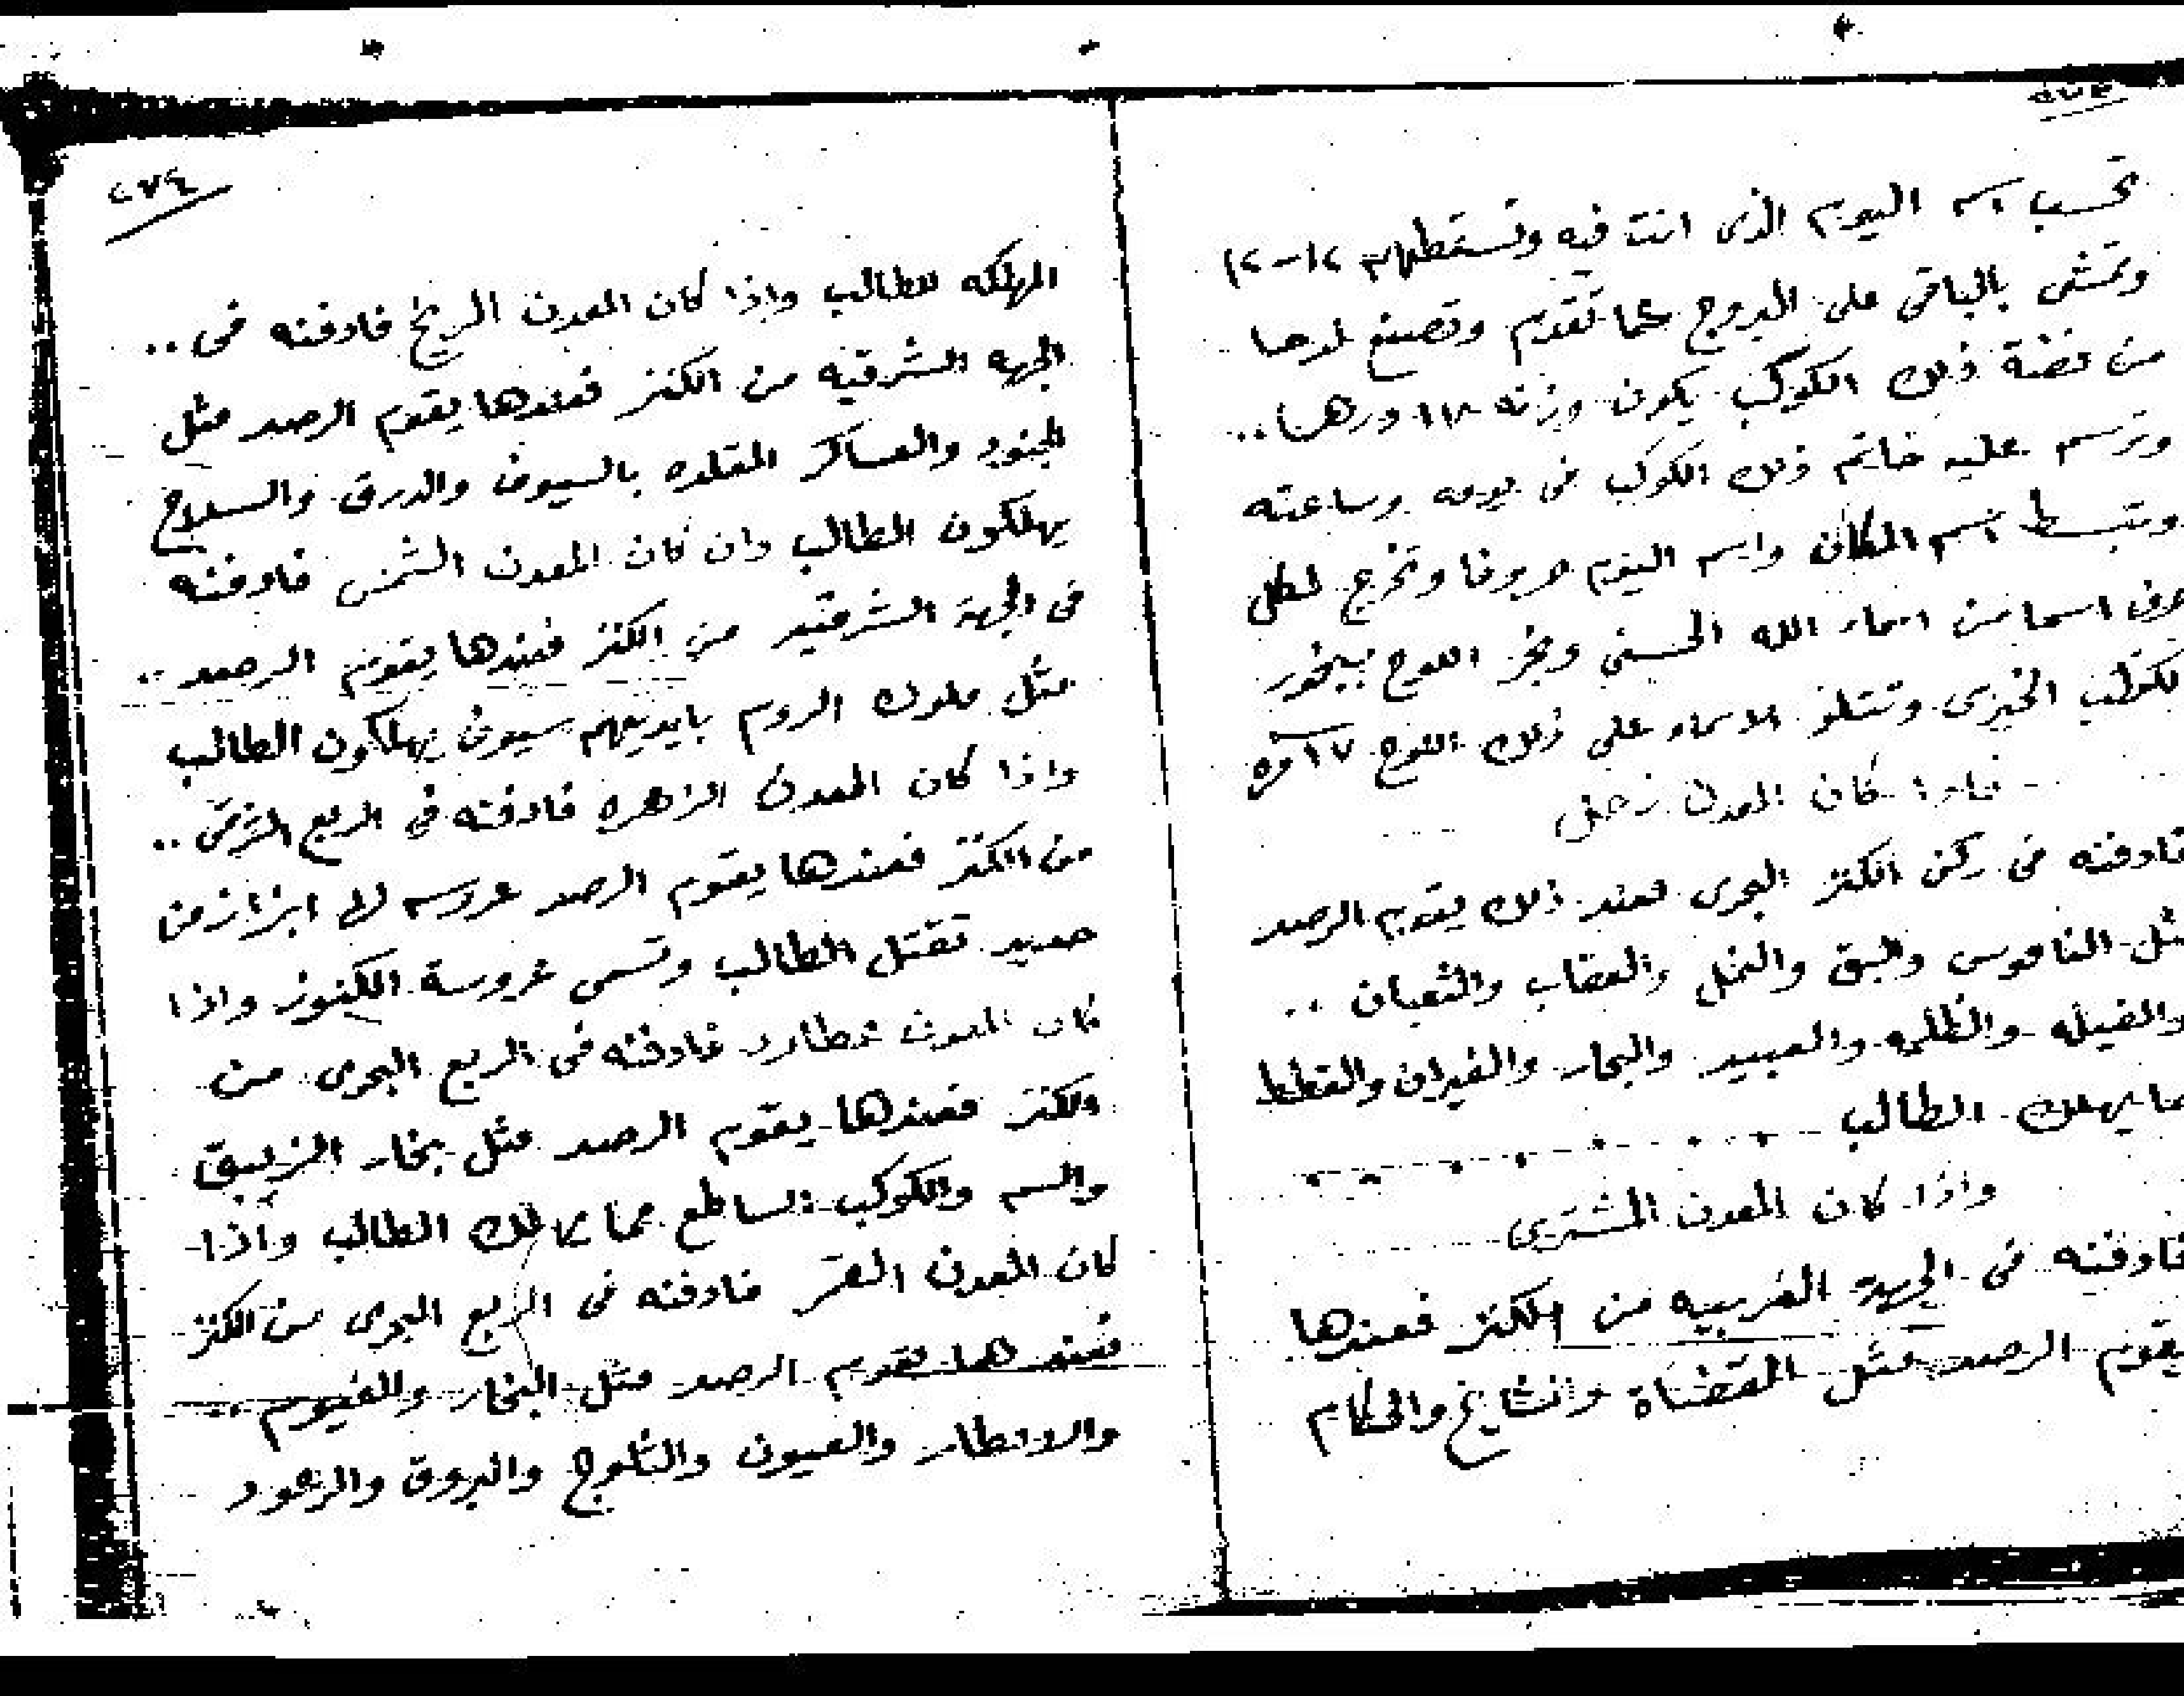 تحسب اسم اليوم الذى انت فيه وتسقطهم ١٢-١٢
وتمشى بالباقى على البروج كما تقدم وتصنع لوحا
من فضة ذلك الكوكب يكون وزنه ١١٨ درهما..
وترسم عليه خاتم ذلك الكوكب فى يومه وساعته
وتبسط اسم المكان واسم اليوم حروفا وتخرج لكل
حرف اسما من اسماء الله الحسنى وبخر اللوح ببخور
الكوكب الخيرى وتتلو الاسماء على ذلك اللوح ١٧ مرة
فاذا كان المعدن زحل
فادفنه فى ركن الكنز البحرى فعند ذلك يقوم الرصد
مثل الناموس والبق والنحل والعقاب والثعبان ..
والفيله والظلمه والعبيد والبحار والفيران والقطط
مما يهلك الطالب
واذا كان المعدن المشترى
فادفنه فى الجهة الغربيه من الكنز فعندها
يقوم الرصد مثل القضاة والمشايخ والحكام
٢٧٤
المهلكه للطالب واذا كان المعدن المريخ فادفنه فى ..
الجهه الشرقيه من الكنز فعندها يقوم الرصد مثل
الجنود والعساكر المقلده بالسيوف والدرق والسلاح
يهلكون الطالب وان كان المعدن الشمس فادفنه
فى الجهة الشرقيه من الكنز فعندها يقوم الرصد ..
مثل ملوك الروم بايديهم سيوف يهلكون الطالب
واذا كان المعدن الزهره فادفنه فى الربع الشرقى ..
من الكنز فعندها يقوم الرصد عروسه لها ابزاز من
حديد تقتل الطالب وتسمى عروسة الكنوز واذا
كان المعدن عطارد فادفنه فى الربع البحرى من
الكنز فعندها يقوم الرصد مثل بخار الزيبق
والسم والكوكب الساطع مما يهلك الطالب واذا
كان المعدن القمر فادفنه فى الربع البحرى من الكنز
فعندها يقوم الرصد مثل البخار والغيوم ..
والامطار والعيون والثلوج والبروق والرعود